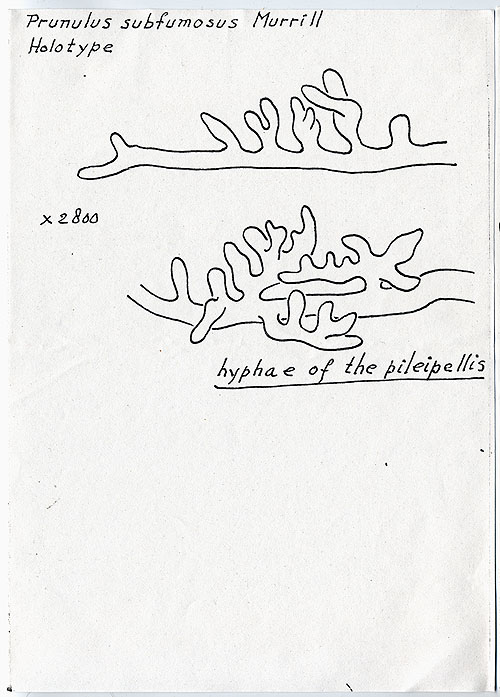 Prunulus subfumosus Murrill
Holotype
x 2800
hyphae of the pileipellis